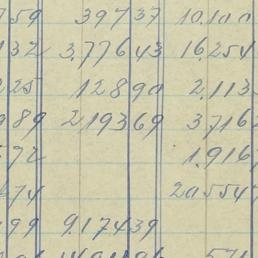 759 39737 10.100
132 3.77643 16.254
225 12890 2.113
989 219369 3.7167
572 1.916
674 205547
999 9.17439